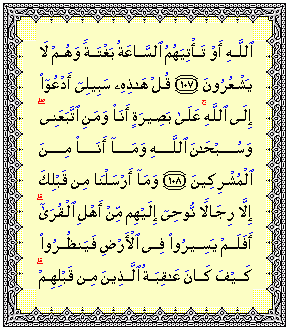 ٱللَّهِ أَوْ تَأْتِيَهُمُ ٱلسَّاعَةُ بَغْتَةً وَهُمْ لَا
يَشْعُرُونَ ١٠٧ قُلْ هَٰذِهِۦ سَبِيلِىٓ أَدْعُوٓا۟
إِلَى ٱللَّهِ ۚ عَلَىٰ بَصِيرَةٍ أَنَا۠ وَمَنِ ٱتَّبَعَنِى ۖ
وَسُبْحَٰنَ ٱللَّهِ وَمَآ أَنَا۠ مِنَ
ٱلْمُشْرِكِينَ ١٠٨ وَمَآ أَرْسَلْنَا مِن قَبْلِكَ
إِلَّا رِجَالًا نُّوحِىٓ إِلَيْهِم مِّنْ أَهْلِ ٱلْقُرَىٰٓ ۗ
أَفَلَمْ يَسِيرُوا۟ فِى ٱلْأَرْضِ فَيَنظُرُوا۟
كَيْفَ كَانَ عَٰقِبَةُ ٱلَّذِينَ مِن قَبْلِهِمْ ۗ